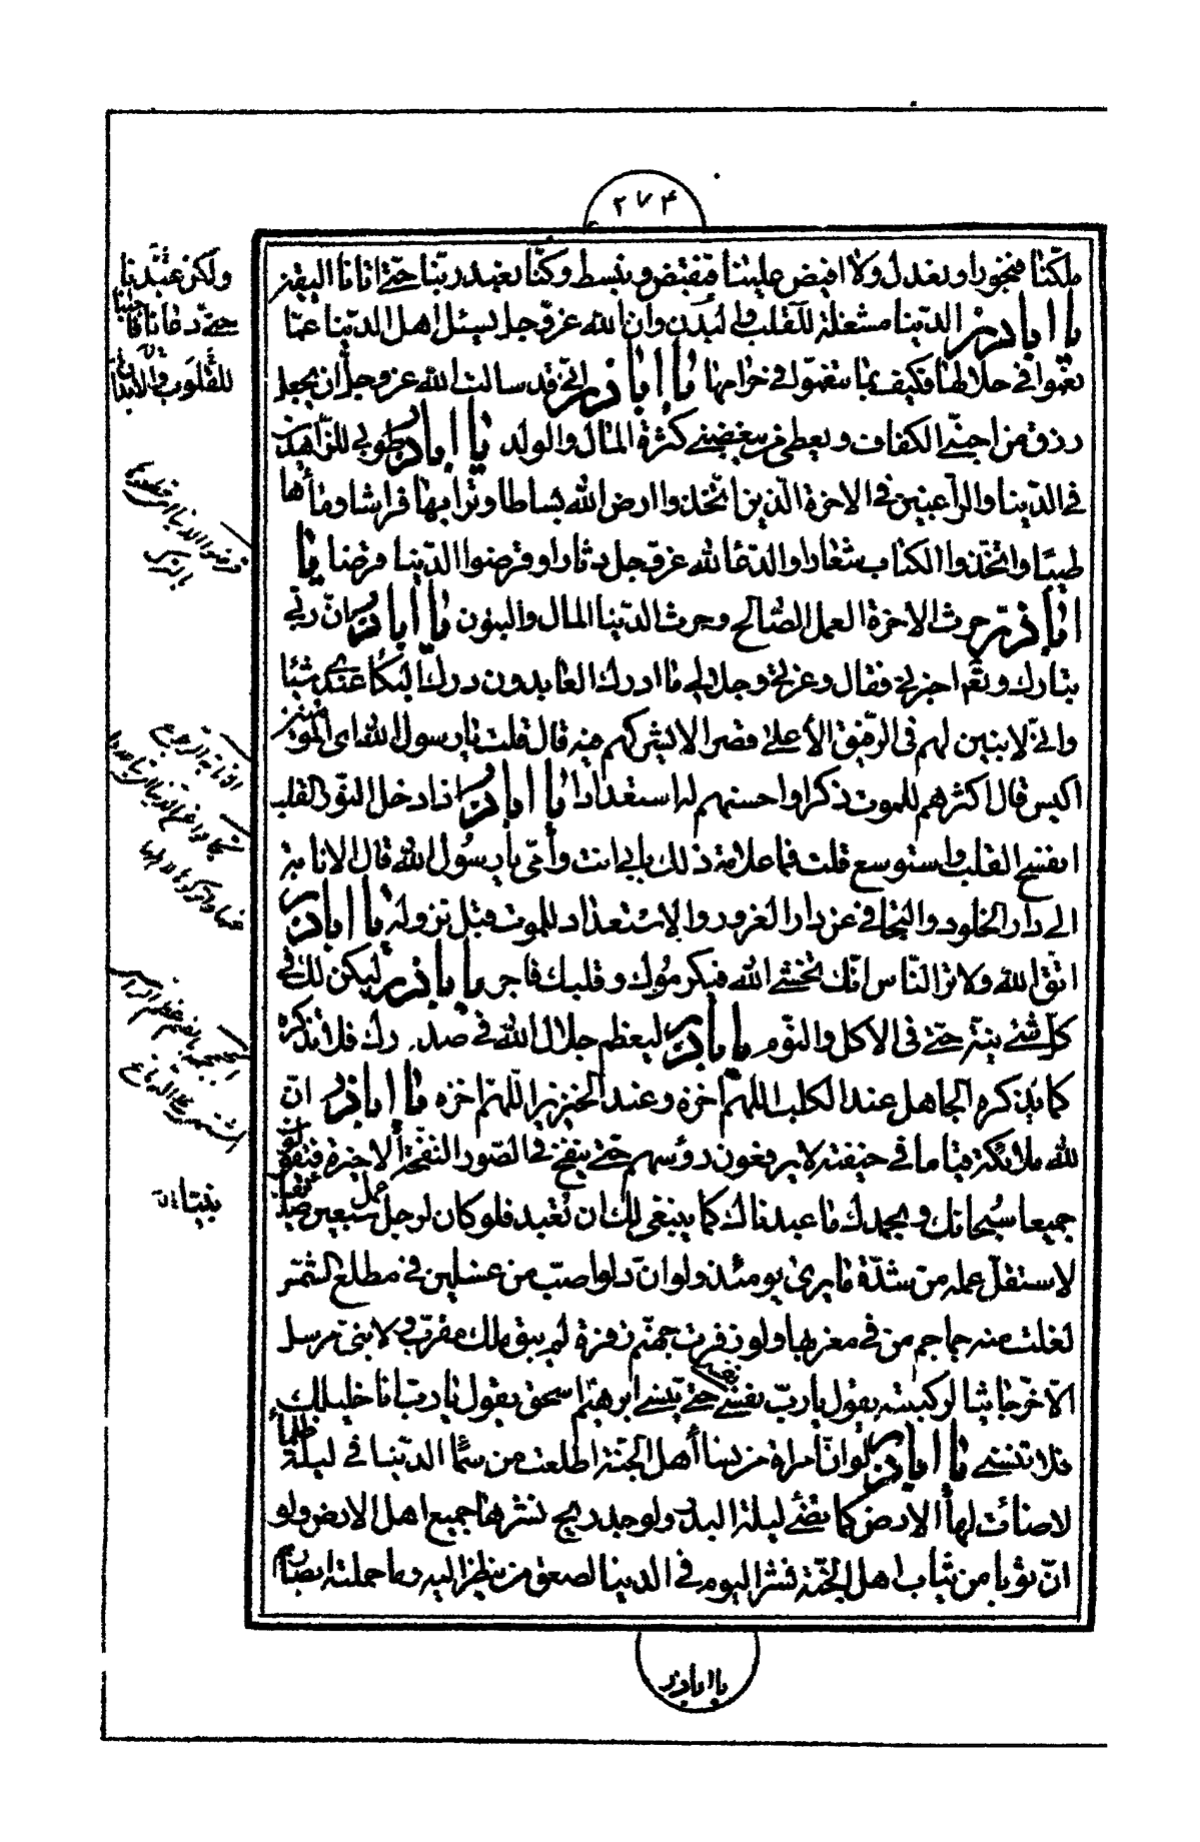 ۲۷۴
ملكنا فنجور او نعدل ولا افيض علينا فنقبض ونبسط وكنا نعبد ربنا حتى اتانا اليقين
يا اباذر الدنيا مشغلة للقلب والبدن وان الله عز وجل يسئل اهل الدنيا عما
نعموا في حلالها فكيف بما تنعموا في حرامها يا اباذر اني قد سالت الله عز وجل ان يجعل
رزق من احبني الكفاف ويعطي من يبغضني كثرة المال والولد يا اباذر طوبى للزاهدين
في الدنيا والراغبين في الاخرة الذين اتخذوا ارض الله بساطا وترابها فراشا وماءها
طيبا واتخذوا الكتاب شعارا والدعاء لله عز وجل دثارا وقرضوا الدنيا قرضا يا
اباذر حرث الاخرة العمل الصالح وحرث الدنيا المال والبنون يا اباذر ان ربي
تبارك وتعم اخبرني فقال وعزتي وجلالي ما ادرك العابدون درك البكاء عندي شيئا
واني لابنين لهم في الرفيق الأعلى قصرا لا يشركهم فيه قال قلت يا رسول الله اي المؤمنين
اكيس قال اكثرهم للموت ذكرا واحسنهم له استعدادا يا اباذر اذا دخل النور القلب
انفسح القلب واستوسع قلت فما علامة ذلك بابي انت وأمي يا رسول الله قال الانابة
الى دار الخلود والتجافي عن دار الغرور والاستعداد للموت قبل نزوله يا اباذر
اتق الله ولا تر الناس انك تخشى الله فيكرموك وقلبك فاجر يا باذر ليكن لك في
كل شئ نية حتى في الاكل والنوم يا باذر ليعظم جلال الله في صدرك فلا تذكره
كما يذكره الجاهل عند الكلب اللهم اخزه وعند الخنزير اللهم اخزه يا اباذر ان
لله ملائكة قياما في خيفته لا يرفعون رؤسهم حتى ينفخ في الصور النفخة الاخرة فيقولون
جميعا سبحانك وبحمدك ما عبدناك كما ينبغي لك ان تعبد فلو كان لرجل عمل سبعين
لاستقل عمله من شدة ما يرى يومئذ ولو ان دلوا صب من غسلين في مطلع الشمس
لغلت منه جماجم من في مغربها ولو زفرت جهنم زفرة لم يبق ملك مقرب ولا نبي مرسل
الا خر جاثيا لركبتيه يقول يا رب نفسي حتى ينسى ابرهيم اسحق يقول يا رب انا خليلك
فلا تنسني يا اباذر لو ان امراة من نساء اهل الجنة اطلعت من سماء الدنيا في ليلة ظلماء
لاضائت لها الارض كما تضئ ليلة البدر ولوجد ريح نشرها جميع اهل الارض ولو
ان ثوبا من ثياب اهل الجنة نشر اليوم في الدنيا لصعق من ينظر اليه وما حملته ابصارهم
يا اباذر
ولكن عبدنا
حتى دعانا فاجبنا
للقلوب والابدان
نبيا